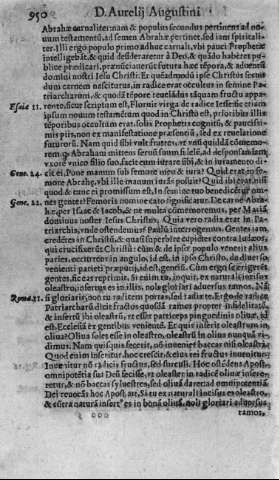 950 D. Aurelij Augustini
Abrahæ carnaliter: nam & populus secundus pertinens ad no-
uum testamentū, ad semen Abrahæ pertinet, sed iam spiritali-
ter. Illi ergo populo primo adhuc carnali, vbi pauci Prophetæ
intelligebāt, & quid desideraretur à Deo, & quādo haberet pu-
blicè prædicari, prænūciauerūt futura hæc tēpora, & aduentū
domini nostri Iesu Christi. Et quēadmodū ipse Christus secun-
dum carnem nasciturus, in radice erat occultus in semine Pa-
triarcharū, & quodā tempore reuelandus, tanquā fructu appa-
Esaie 11. rente, sicut scriptum est, Floruit virga de radice Iesse: sic etiam
ipsum nouum testamentum quod in Christo est, prioribus illis
tēporibus occultum erat, solis Prophetis cognitū, & paucissi-
mis pijs, non ex manifestatione præsentiū, sed ex reuelatione
futurorū. Nam quid sibi vult fratres, vt
Gene. 24. cit. Pone manum sub femore meo & iura? Quid erat in fe-
more Abrahæ, vbi ille manum
quod & tunc ei promissum est, In semine tuo benedicētur om-
Gene. 22. nes gentes? Femoris nomine caro significatur. De carne Abra-
hæ, per Isaac & Iacob, & ne multa commemoremus, per Mariā
dominus noster Iesus Christus. Quia vero radix erat in Pa-
triarchis, vnde ostendimus? Paulū interrogemus. Gentes iam
credētes in Christū, & quasi superbire cupientes contra Iudæos,
qui crucifixerūt Christū: cùm & de ipso populo venerit alius
paries, occurrens in angulo, id est, in ipso Christo, de
venienti parieti præputij, id est, gentiū. Cùm ergo se erigerēt
gentes, sic eas reprimit. Si enim tu, inquit, ex naturali incisus
oleastro, insertus es in illis, noli gloriari aduersus ramos. Nā
Rom. 11. si gloriaris, non tu radicem portas, sed radix te. Ergo de radice
Patriarcharū dicit fractos quosdā ramos propter infidelitatē,
& insertū ibi oleastrū, vt esset particeps pinguedinis oliuæ, id
est, Ecclesiā ex gentibus venientē. Et quis inserit oleastrum in
oliua? Oliua solet esse in oleastro, oleastrū in oliua nunquā vi-
dimus. Nam quisquis fecerit, nō inueniet baccas nisi oleastri.
Quod enim inseritur, hoc crescit, & eius rei fructus inuenitur.
Inue nitur nō radicis fructus, sed surculi. Hoc ostēdens Apost.
omnipotētia sua Deū fecisse, vt oleaster in radicē oliuæ insere-
retur, & nō baccas syluestres, sed oliuā daret: ad omnipotētiā
Dei reuocās hoc Apost. ait, Si tu ex naturali incisus es oleastro,
& cōtra naturā insert⁹ es in bonā oliuā, noli gloriari aduersus
ooo ramos,